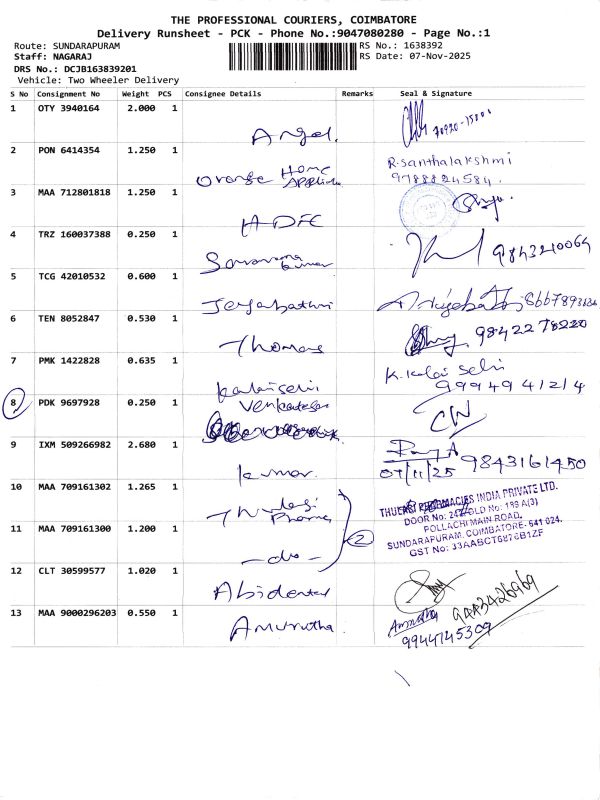 THE PROFESSIONAL COURIERS, COIMBATORE
Delivery Runsheet - PCK - Phone No.:9047080280 - Page No.:1
Route: SUNDARAPURAM RS No.: 1638392
Staff: NAGARAJ RS Date: 07-Nov-2025
DRS No.: DCJB163839201
Vehicle: Two Wheeler Delivery
S No Consignment No Weight PCS Consignee Details Remarks Seal & Signature
1 OTY 3940164 2.000 1
Angel.
2 PON 6414354 1.250 1
Orange Home R.santhalakshmi
9788824584.
3 MAA 712801818 1.250 1
HDFC
4 TRZ 160037388 0.250 1
Saravana kumar 9843210064
5 TCG 42010532 0.600 1
8667893686
6 TEN 8052847 0.530 1
Thomas 9842278220
7 PMK 1422828 0.635 1
Kalaiselvi K. Kalai Selvi
9994941214
8 PDK 9697928 0.250 1
Venkatesan
9 IXM 509266982 2.680 1
kumar. 07/11/25 9843161450
10 MAA 709161302 1.265 1
Thulasi Pharma THULASI PHARMACIES INDIA PRIVATE LTD.
DOOR No: OLD No: 189 A(3)
POLLACHI MAIN ROAD,
SUNDARAPURAM, COIMBATORE- 641 024.
11 MAA 709161300 1.200 1
-do- 2
12 CLT 30599577 1.020 1
Abidental
13 MAA 9000296203 0.550 1
Amurutha Amrutha
9944145309